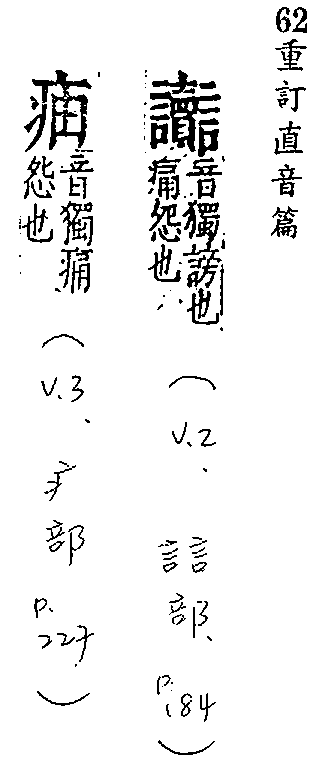 62重訂直音篇
讟音獨謗也
痛怨也
(V.2、誩部、P.184)
音獨痛
怨也
(V.3、疒部P.227)